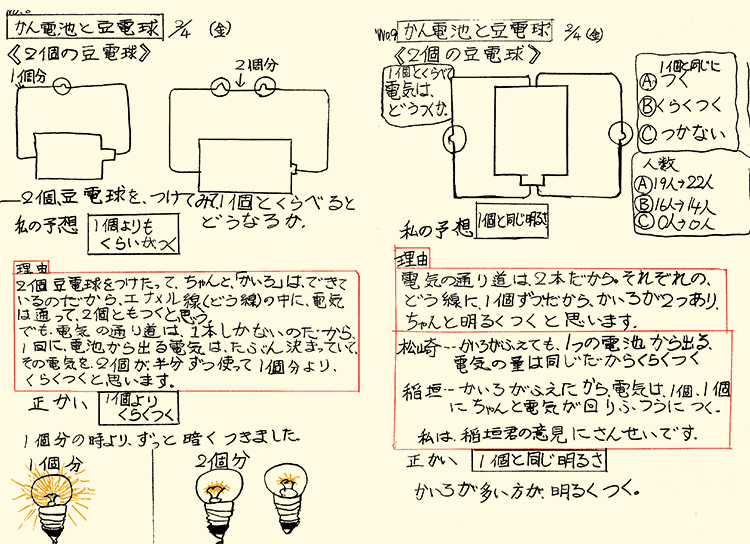 No.8
かん電池と豆電球 2/4 (金)
《2個の豆電球》
1個分
2個分
2個、豆電球を、つけてみて、1個とくらべると
どうなるか。
私の予想
1個よりも
くらいがつく
理由
2個豆電球をつけたって、ちゃんと、「かいろ」は、できて
いるのだから、エナメル線(どう線)の中に、電気
は通って、2個ともつくと思う。
でも、電気の通り道は、1本しかないのだから、
1回に、電池から出る電気は、たぶん決まっていて、
その電気を、2個が半分ずつ使って1個分より、
くらくつくと思います。
正かい
1個より
くらくつく
1個分の時より、ずっと暗くつきました。
1個分
2個分
No.9 かん電池と豆電球 2/4(金)
《2個の豆電球》
1個とくらべて
電気は、
どうつくか。
1個と同じに
Ⓐつく
Ⓑくらくつく
Ⓒつかない
人数
Ⓐ19人→22人
Ⓑ16人→14人
Ⓒ0人→0人
私の予想
1個と同じ明るさ
理由
電気の通り道は、2本だから。それぞれの、
どう線に、1個ずつだから、かいろが2つあり、
ちゃんと明るくつくと思います。
松崎…かいろがふえても、1つの電池から出る、
電気の量は同じだからくらくつく
稲垣…かいろがふえたから、電気は、1個、1個
にちゃんと電気が回りふつうにつく。
私は、稲垣君の意見にさんせいです。
正かい
1個と同じ明るさ
かいろが多い方が、明るくつく。